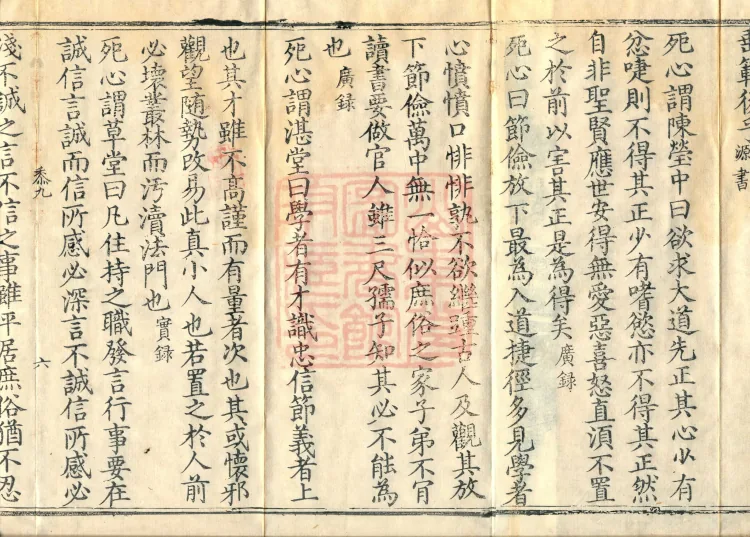 垂範後 源書
死心謂陳瑩中曰欲求大道先正其心少有
忿嚏則不得其正少有嗜慾亦不得其正然
自非聖賢應世安得無愛惡喜怒直湏不置
之於前以害其正是為得矣 廣録
死心曰節儉放下最為入道捷徑多見學者
心憤憤口悱悱孰不欲繼踵古人及觀其放
下節儉萬中無一恰似庶俗之家子弟不肎
讀書要做官人雖三尺孺子知其必不能為
也 廣録
死心謂湛堂曰學者有才識忠信節義者上
也其才雖不高謹而有量者次也其或懷邪
觀望随勢改易此真小人也若置之於人前
必壞叢林而汚瀆法門也 實録
死心謂草堂曰凡住持之職發言行事要在
誠信言誠而信所感必深言不誠信所感必
黍九 六
淺不誠之言不信之事雖平居庶俗猶不忍